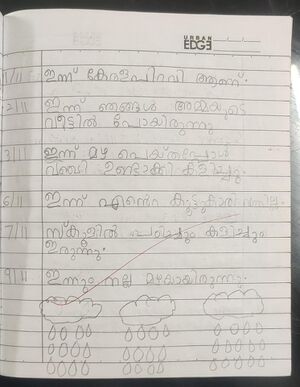 URBAN
EDGE
1/11 ഇന്ന് കേരളപിറവി ആണ്.
2/11 ഇന്ന് ഞങ്ങൾ അമ്മയുടെ
വീട്ടിൽ പോയിരുന്നു
3/11 ഇന്ന് മഴ പെയ്തപ്പോൾ
വഞ്ചി ഉണ്ടാക്കി കളിച്ചു.
6/11 ഇന്ന് എൻെറ കൂട്ടുകാരി വന്നില്ല.
7/11 സ്കൂളിൽ പഠിച്ചും കളിച്ചും
ഇരുന്നു.
9/11 ഇന്നും നല്ല മഴയായിരുന്നു.